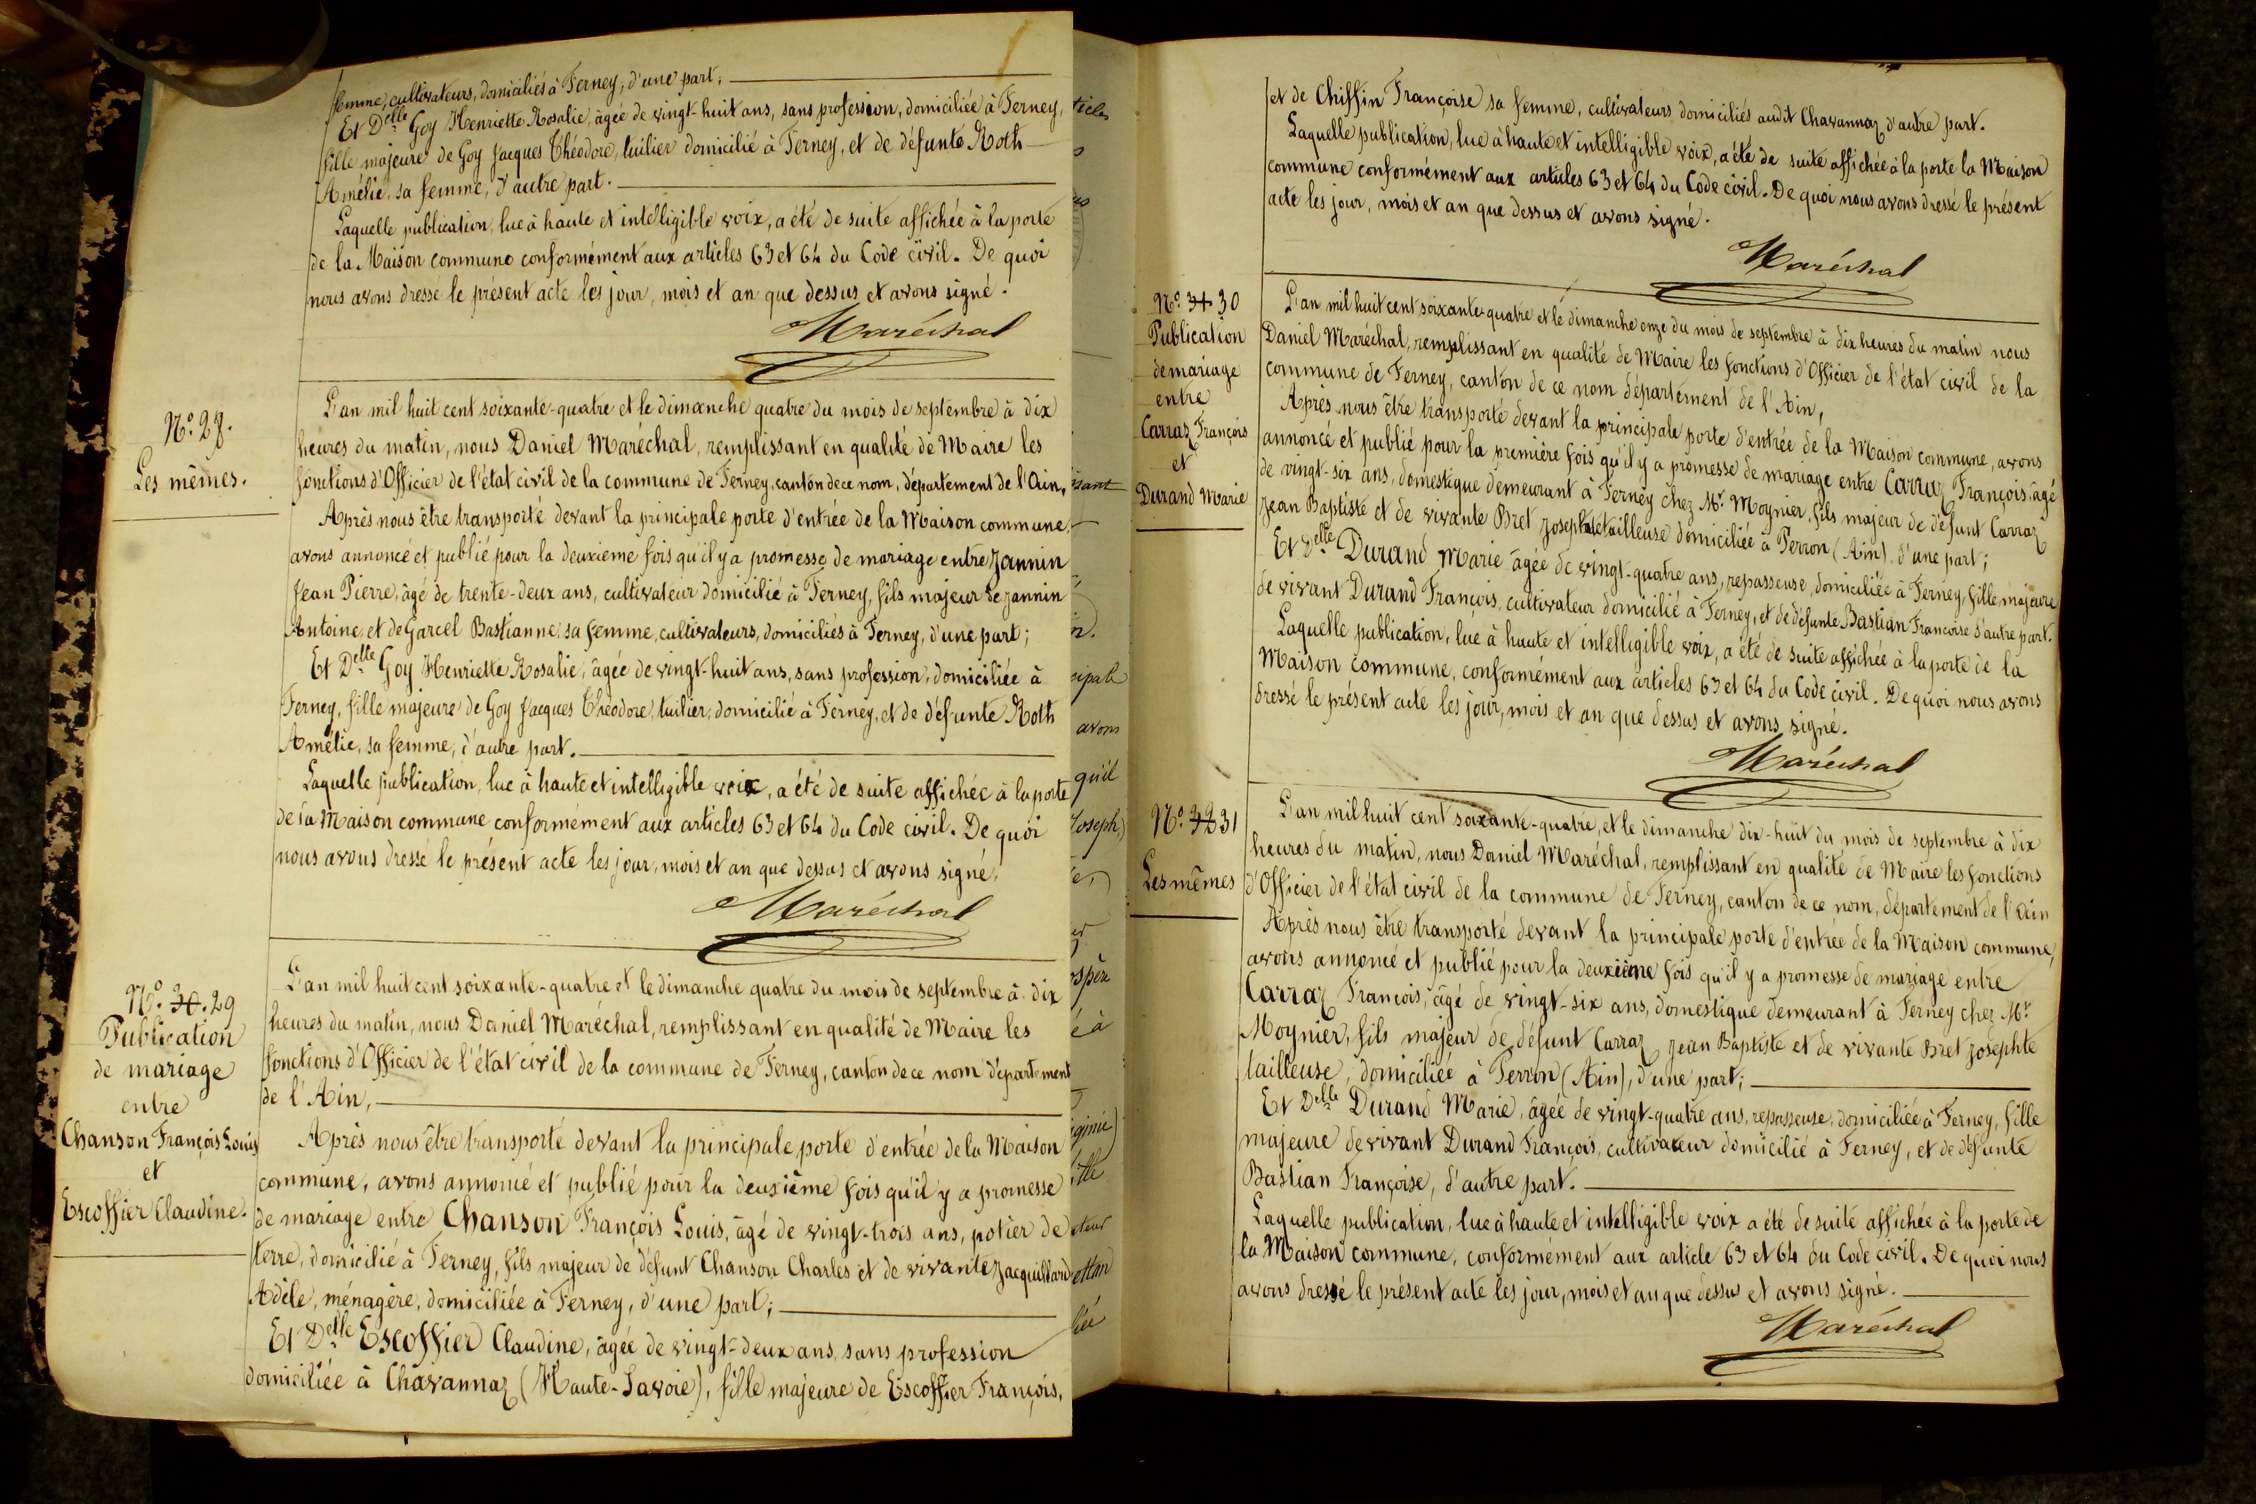 femme, cultivateurs, domiciliés à Ferney, d'une part;
Et Delle Goy Henriette Rosalie, âgée de vingt-huit ans, sans profession, domiciliée à Ferney,
fille majeure de Goy Jacques Théodore, tuilier domicilié à Ferney, et de défunte Roth
Amélie, sa femme, d'autre part.
Laquelle publication, lue à haute et intelligible voix, a été de suite affichée à la porte
de la Maison commune conformément aux articles 63 et 64 du Code civil. De quoi
nous avons dressé le présent acte les jour, mois et an que dessus et avons signé.
Maréchal
No. 28.
Les mêmes.
L'an mil huit cent soixante-quatre et le dimanche quatre du mois de septembre à dix
heures du matin, nous Daniel Maréchal, remplissant en qualité de Maire les
fonctions d'Officier de l'état civil de la commune de Ferney, canton de ce nom, département de l'Ain,
Après nous être transporté devant la principale porte d'entrée de la Maison commune,
avons annoncé et publié pour la deuxième fois qu'il y a promesse de mariage entre Jannin
Jean Pierre, âgé de trente-deux ans, cultivateur domicilié à Ferney, fils majeur de Jannin
Antoine, et de Garcel Bastianne, sa femme, cultivateurs, domiciliés à Ferney, d'une part;
Et Delle Goy Henriette Rosalie, âgée de vingt-huit ans, sans profession, domiciliée à
Ferney, fille majeure de Goy Jacques Théodore, tuilier, domicilié à Ferney, et de défunte Roth
Amélie, sa femme, d'autre part.
Laquelle publication, lue à haute et intelligible voix, a été de suite affichée à la porte
de la Maison commune conformément aux articles 63 et 64 du Code civil. De quoi
nous avons dressé le présent acte les jour, mois et an que dessus et avons signé.
Maréchal
No. 30. 29
Publication
de mariage
entre
Chanson François Louis
et
Escoffier Claudine.
L'an mil huit cent soixante-quatre et le dimanche quatre du mois de septembre à dix
heures du matin, nous Daniel Maréchal, remplissant en qualité de Maire les
fonctions d'Officier de l'état civil de la commune de Ferney, canton de ce nom département
de l'Ain,
Après nous être transporté devant la principale porte d'entrée de la Maison
commune, avons annoncé et publié pour la deuxième fois qu'il y a promesse
de mariage entre Chanson François Louis, âgé de vingt-trois ans, potier de
terre, domicilié à Ferney, fils majeur de défunt Chanson Charles et de vivante Jacquillard
Adèle, ménagère, domiciliée à Ferney, d'une part;
Et Delle Escoffier Claudine, âgée de vingt-deux ans, sans profession
domiciliée à Chavannaz (Haute-Savoie), fille majeure de Escoffier François,
et de Chiffin Françoise sa femme, cultivateurs domiciliés audit Chavannaz d'autre part.
Laquelle publication, lue à haute et intelligible voix, a été de suite affichée à la porte la Maison
commune conformément aux articles 63 et 64 du Code civil. De quoi nous avons dressé le présent
acte les jour, mois et an que dessus et avons signé.
Maréchal
No. 31 30
Publication
de mariage
entre
Carraz François
et
Durand Marie
L'an mil huit cent soixante quatre et le dimanche onze du mois de septembre à dix heures du matin nous
Daniel Maréchal, remplissant en qualité de Maire les fonctions d'Officier de l'état civil de la
commune de Ferney, canton de ce nom département de l'Ain,
Après nous être transporté devant la principale porte d'entrée de la Maison commune, avons
annoncé et publié pour la première fois qu'il y a promesse de mariage entre Carraz François, âgé
de vingt-six ans, domestique demeurant à Ferney chez Mr. Moynier, fils majeur de défunt Carraz
Jean Baptiste et de vivante Bret Josephte tailleuse domiciliée à Perron (Ain), d'une part;
Et Delle Durand Marie âgée de vingt-quatre ans, repasseuse, domiciliée à Ferney, fille majeure
de vivant Durand François, cultivateur domicilié à Ferney, et de défunte Bastian Françoise d'autre part.
Laquelle publication, lue à haute et intelligible voix, a été de suite affichée à la porte de la
Maison commune, conformément aux articles 63 et 64 du Code civil. De quoi nous avons
dressé le présent acte les jour, mois et an que dessus et avons signé.
Maréchal
No. 32 31
Les mêmes
L'an mil huit cent soixante-quatre, et le dimanche dix-huit du mois de septembre à dix
heures du matin, nous Daniel Maréchal, remplissant en qualité de Maire les fonctions
d'Officier de l'état civil de la commune de Ferney, canton de ce nom, département de l'Ain
Après nous être transporté devant la principale porte d'entrée de la Maison commune,
avons annoncé et publié pour la deuxième fois qu'il y a promesse de mariage entre
Carraz François, âgé de vingt-six ans, domestique demeurant à Ferney chez Mr.
Moynier, fils majeur de défunt Carraz Jean Baptiste et de vivante Bret Josephte
tailleuse, domiciliée à Perron (Ain), d'une part;
Et Delle Durand Marie, âgée de vingt-quatre ans, repasseuse, domiciliée à Ferney, fille
majeure de vivant Durand François, cultivateur domicilié à Ferney, et de défunte
Bastian Françoise, d'autre part.
Laquelle publication, lue à haute et intelligible voix a été de suite affichée à la porte de
la Maison commune, conformément aux article 63 et 64 du Code civil. De quoi nous
avons dressé le présent acte les jour, mois et an que dessus et avons signé.
Maréchal